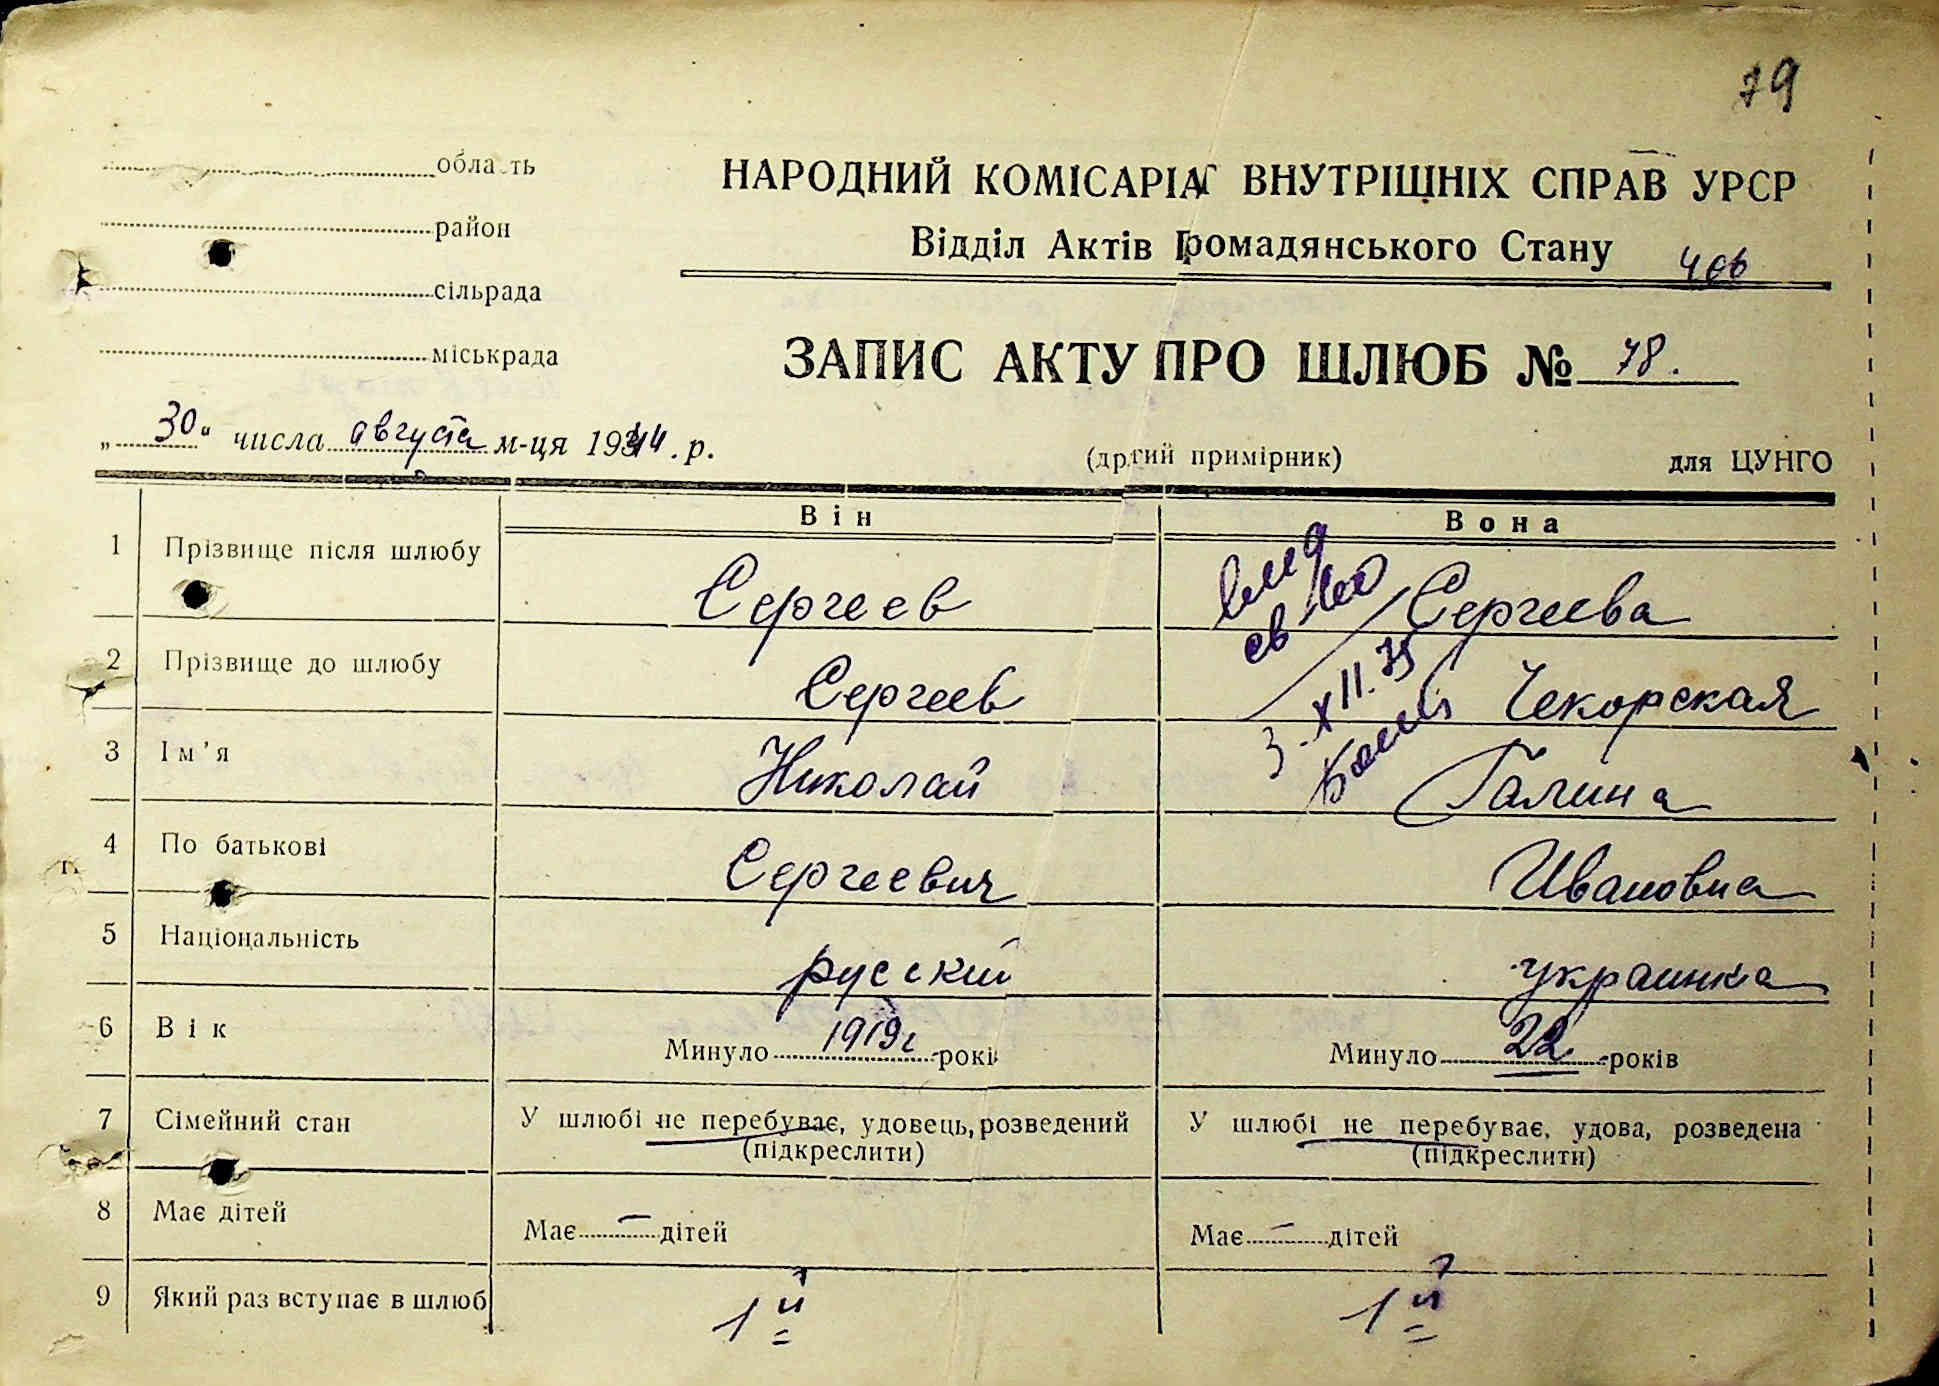 79
область
район
сільрада
міськрада
НАРОДНИЙ КОМІСАРІАТ ВНУТРІШНІХ СПРАВ УРСР
Відділ Актів Громадянського Стану
ЗАПИС АКТУ ПРО ШЛЮБ № 78.
„30“ числа августа м-ця 1944. р.
(другий примірник) для ЦУНГО
Він Вона
1 Прізвище після шлюбу Сергеев Сергеева
2 Прізвище до шлюбу Сергеев Чекорская
3 Ім'я Николай Галина
4 По батькові Сергеевич Ивановна
5 Національність русский украинка
6 Вік Минуло 1919г років Минуло 22 років
7 Сімейний стан У шлюбі не перебуває, удовець, розведений У шлюбі не перебуває, удова, розведена
(підкреслити) (підкреслити)
8 Має дітей Має — дітей Має — дітей
9 Який раз вступає в шлюб 1й 1й
3.XII.75